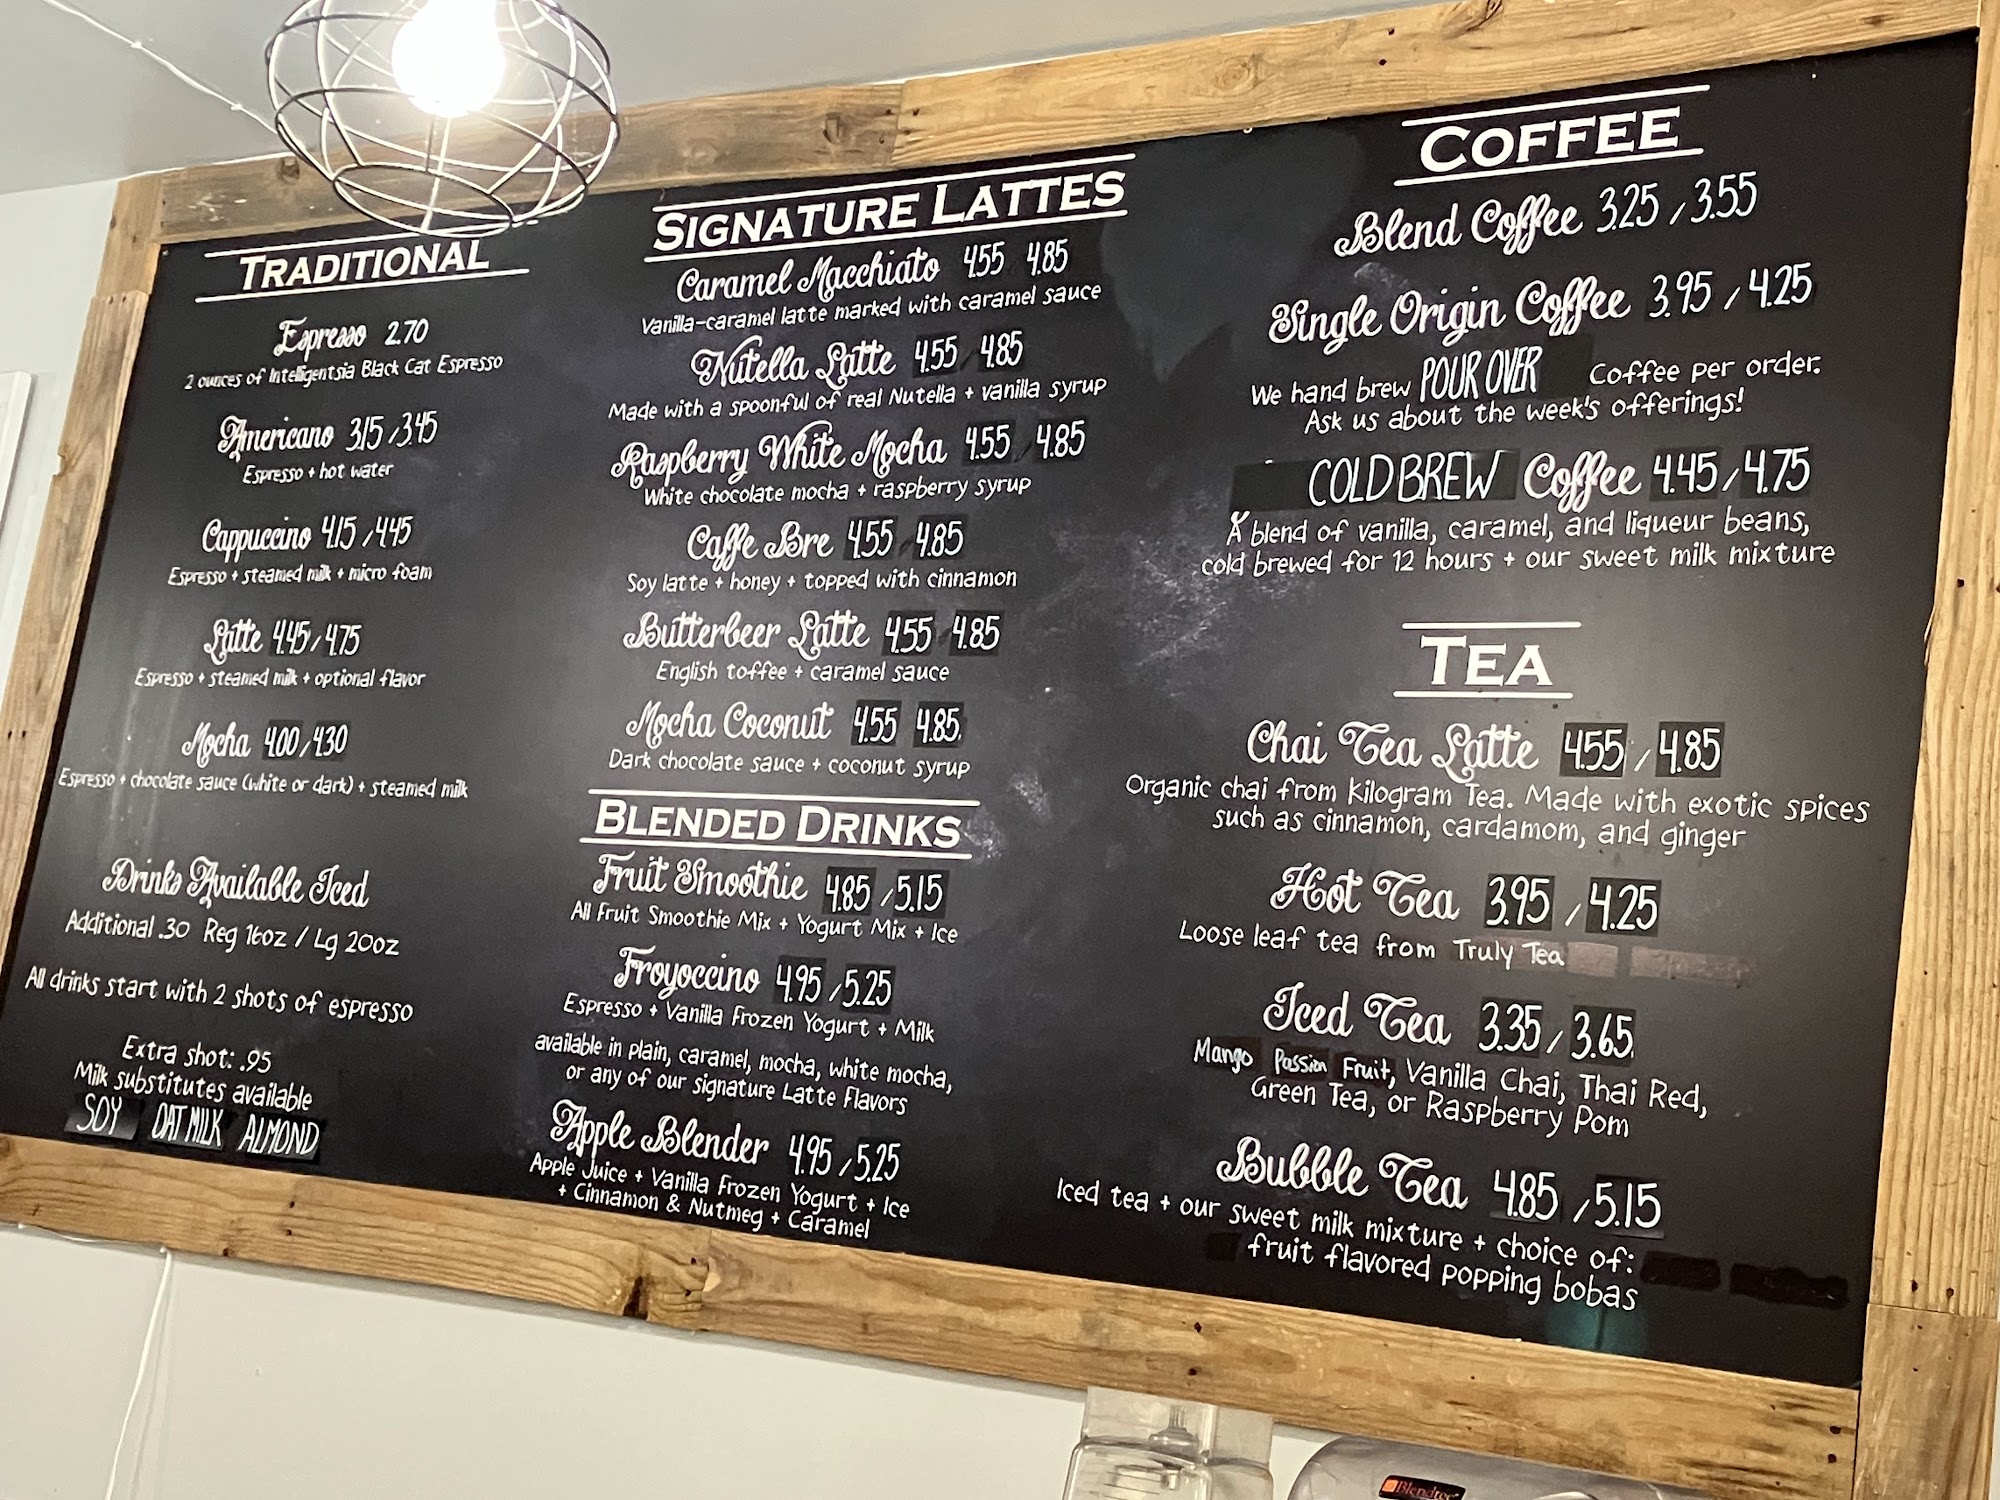 TRADITIONAL
Espresso 2.70
2 ounces of Intelligentsia Black Cat Espresso
Americano 3.15 / 3.45
Espresso + hot water
Cappuccino 4.15 / 4.45
Espresso + steamed milk + micro foam
Latte 4.45 / 4.75
Espresso + steamed milk + optional flavor
Mocha 4.00 / 4.30
Espresso + chocolate sauce (white or dark) + steamed milk
Drinks Available Iced
Additional .30 Reg 16oz / Lg 20oz
All drinks start with 2 shots of espresso
Extra shot: .95
Milk substitutes available
SOY OAT MILK ALMOND
SIGNATURE LATTES
Caramel Macchiato 4.55 4.85
Vanilla-caramel latte marked with caramel sauce
Nutella Latte 4.55 / 4.85
Made with a spoonful of real Nutella + vanilla syrup
Raspberry White Mocha 4.55 4.85
White chocolate mocha + raspberry syrup
Caffe Bre 4.55 4.85
Soy latte + honey + topped with cinnamon
Butterbeer Latte 4.55 4.85
English toffee + caramel sauce
Mocha Coconut 4.55 4.85
Dark chocolate sauce + coconut syrup
BLENDED DRINKS
Fruit Smoothie 4.85 / 5.15
All Fruit Smoothie Mix + Yogurt Mix + Ice
Froyoccino 4.95 / 5.25
Espresso + Vanilla Frozen Yogurt + Milk
available in plain, caramel, mocha, white mocha,
or any of our signature Latte Flavors
Apple Blender 4.95 / 5.25
Apple Juice + Vanilla Frozen Yogurt + Ice
+ Cinnamon & Nutmeg + Caramel
COFFEE
Blend Coffee 3.25 / 3.55
Single Origin Coffee 3.95 / 4.25
We hand brew POUR OVER Coffee per order.
Ask us about the week's offerings!
COLD BREW Coffee 4.45 / 4.75
A blend of vanilla, caramel, and liqueur beans,
cold brewed for 12 hours + our sweet milk mixture
TEA
Chai Tea Latte 4.55 / 4.85
Organic chai from Kilogram Tea. Made with exotic spices
such as cinnamon, cardamom, and ginger
Hot Tea 3.95 / 4.25
Loose leaf tea from Truly Tea
Iced Tea 3.35 / 3.65
Mango Passion Fruit, Vanilla Chai, Thai Red,
Green Tea, or Raspberry Pom
Bubble Tea 4.85 / 5.15
Iced tea + our sweet milk mixture + choice of:
fruit flavored popping bobas
Blendtec